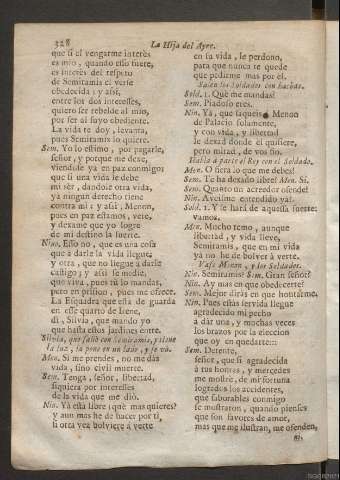 328 La Hija del Ayre.
que si el vengarme interès
es mio, quando esso fuere,
es interès del respeto
de Semiramis el verse
obedecida: y assi,
entre los dos interesses,
quiero ser rebelde al mio,
por ser al suyo obediente.
La vida te doy, levanta,
pues Semiramis lo quiere.
Sem. Yo lo estimo, por pagarle,
señor, y porque me dexe,
viendole ya en paz conmigo:
que si una vida le debe
mi sèr, dandole otra vida,
ya ningun derecho tiene
contra mi: y assi, Menon,
pues en paz estamos, vete,
y dexame que yo logre
de mi destino la suerte.
Nin. Esso no, que es una cosa
que a darle la vida llegue,
y otra, que no llegue a darle
castigo; y assi se medie,
que viva, pues tù lo mandas,
pero en prision, pues me ofrece.
La Esquadra que està de guarda
en esse quarto de Irene,
di, Silvia, que mando yo
que hasta estos jardines entre.
Silvia, que saliò con Semiramis, tiene
la luz, la pone en un lado, y se và.
Men. Si me prendes, no me dàs
vida, sino civil muerte.
Sem. Tenga, señor, libertad,
siquiera por interesses
de la vida que me diò.
Nin. Yà està libre: què mas quieres?
y aun mas he de hacer por ti,
si otra vez bolviere à verte
en su vida, le perdono,
para que nunca te quede
que pedirme mas por èl.
Salen los Soldados con hachas.
Sold. 1. Què me mandas?
Sem. Piadoso eres.
Nin. Yà, que saqueis à Menon
de Palacio solamente,
y con vida, y libertad
le dexad donde èl quisiere,
pero mirad, de vos fio.
Habla à parte al Rey con el Soldado.
Men. O fiera lo que me debes!
Sem. Te ha dexado libre? Men. Si.
Sem. Quanto un acreedor ofende!
Nin. Aveisme entendido ya?
Sold. 1. Y se harà de aquessa suerte:
vamos.
Men. Mucho temo, aunque
libertad, y vida lleve,
Semiramis, que en mi vida
yà no he de bolver à verte.
Vase Menon, y los Soldados.
Nin. Semiramis? Sem. Gran señor?
Nin. Ay mas en que obedecerte?
Sem. Mejor diràs en que honrarme.
Nin. Pues estas servida llegue
agradecido mi pecho
à dàr una, y muchas veces
los brazos por la eleccion
que oy en quedarte:::
Sem. Detente,
señor, que si agradecida
à tus honras, y mercedes
me mostrè, de mi fortuna
logrados los accidentes,
que favorables conmigo
se mostraron, quando pienses
que son favores de amor,
mas que me ilustran, me ofenden,